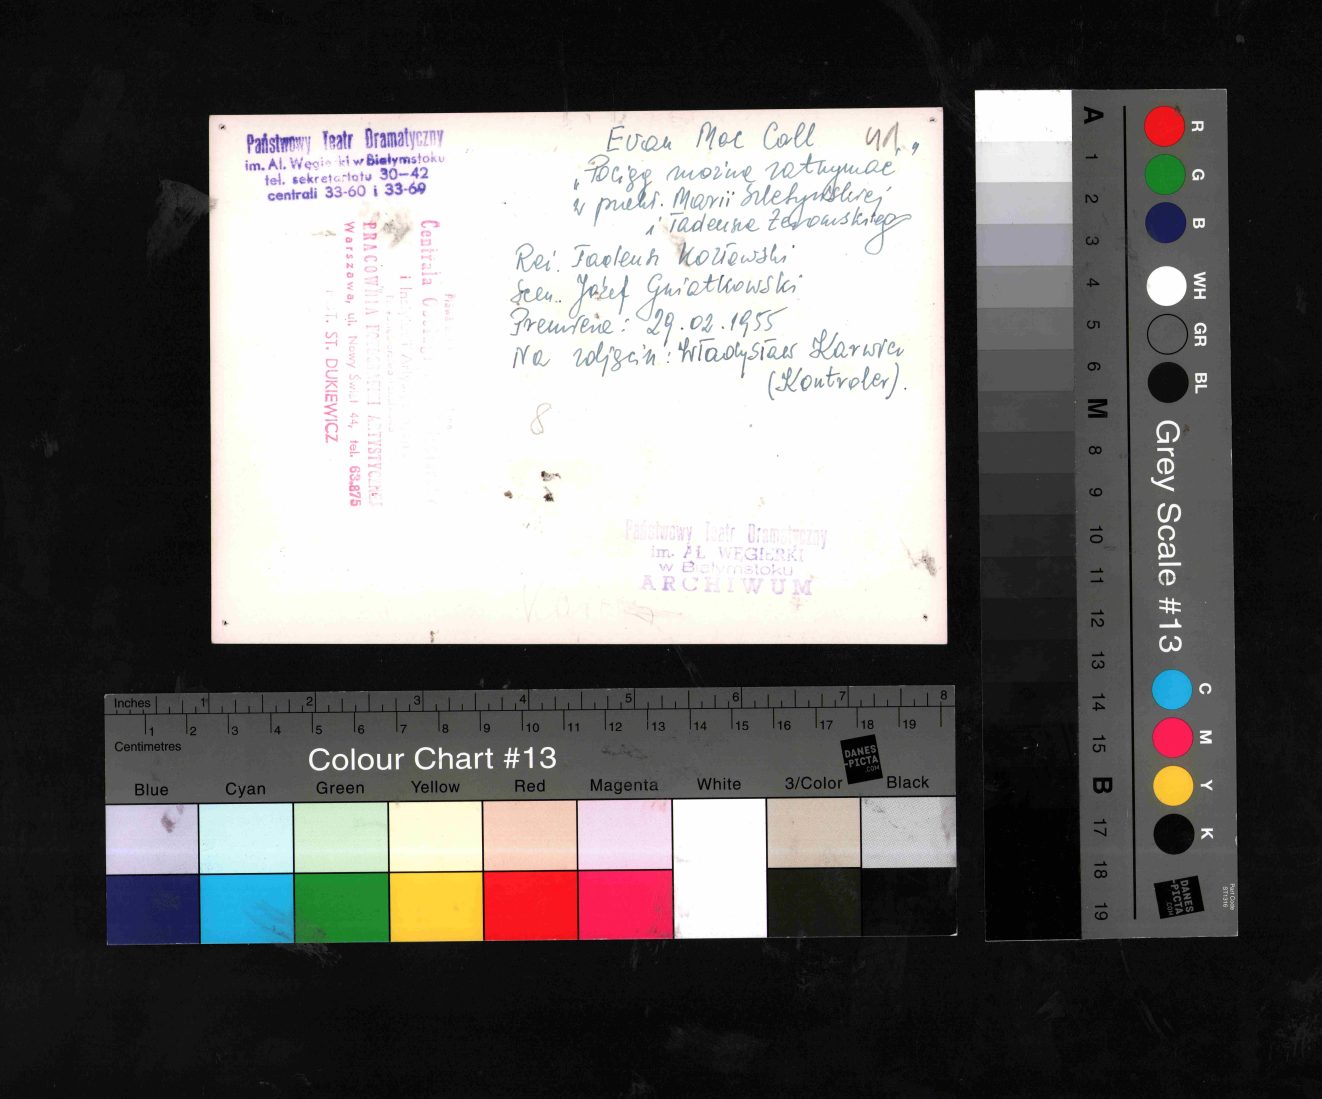 Państwowy Teatr Dramatyczny
im. Al. Węgierki w Białymstoku
tel. sekretariatu 30-42
centrali 33-60 i 33-69
Ewan Mac Coll
41.
„Pociąg można zatrzymać"
w przekł. Marii
i Tadeusza Żeromskiego
Reż. Tadeusz Kozłowski
Scen. Józef Gniatkowski
Premiera: 29.02.1955
Na zdjęciu: Władysław Karwicz
(Kontroler).
Centrala
PRACOWNIA ARTYSTYCZNEJ
Warszawa, ul. Nowy Świat 44, tel. 63.875
ST. DUKIEWICZ
8
Państwowy Teatr Dramatyczny
im. AL. WĘGIERKI
w Białymstoku
ARCHIWUM
Inches 1 2 3 4 5 6 7 8
1 2 3 4 5 6 7 8 9 10 11 12 13 14 15 16 17 18 19
Centimetres
Colour Chart #13
DANES
-PICTA
.COM
Blue Cyan Green Yellow Red Magenta White 3/Color Black
A 1 2 3 4 5 6 M 8 9 10 11 12 13 14 15 B 17 18 19
R G B WH GR BL
Grey Scale #13
C M Y K
DANES
-PICTA
.COM
Part Code
ST1316